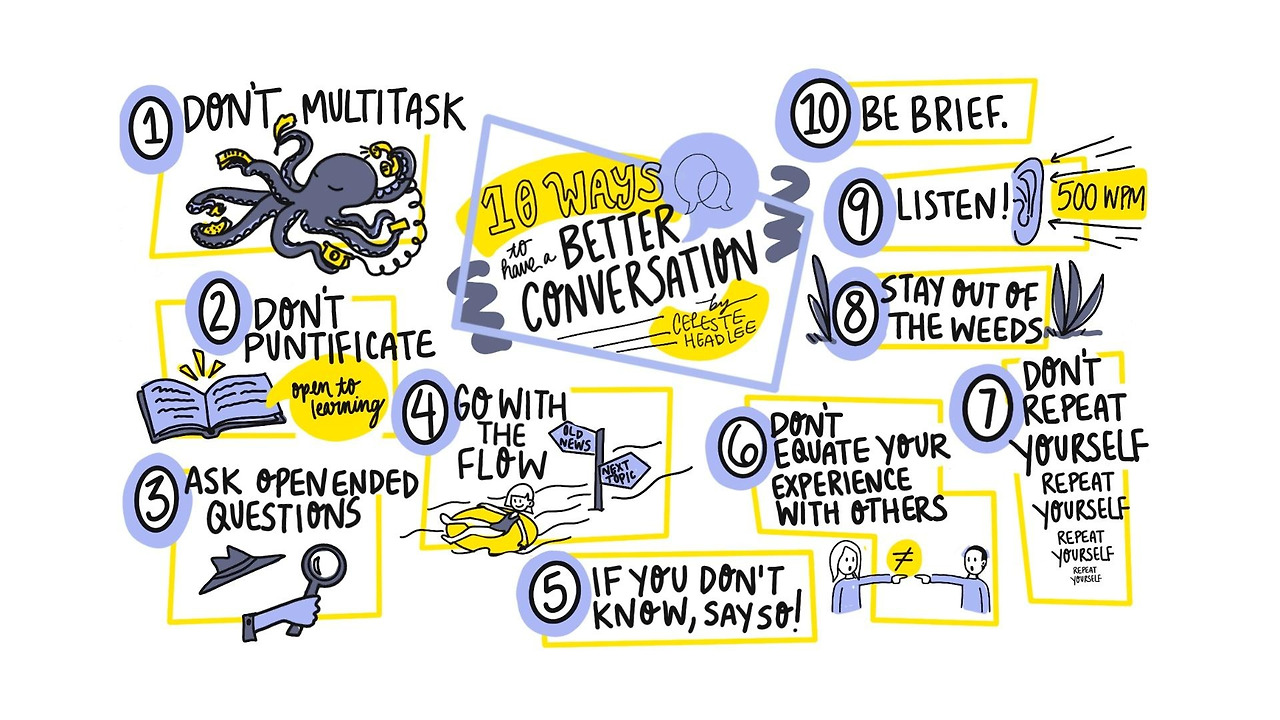 10 WAYS
to
have a BETTER
CONVERSATION
by
CELESTE
HEADLEE
1 DON'T MULTITASK
2 DON'T
PUNTIFICATE
open to
learning
3 ASK OPEN ENDED
QUESTIONS
4 GO WITH
THE
FLOW
OLD
NEWS
NEXT
TOPIC
5 IF YOU DON'T
KNOW, SAY SO!
6 DON'T
EQUATE YOUR
EXPERIENCE
WITH OTHERS
≠
7 DON'T
REPEAT
YOURSELF
REPEAT
YOURSELF
REPEAT
YOURSELF
REPEAT
YOURSELF
8 STAY OUT OF
THE WEEDS
9 LISTEN!
500 WPM
10 BE BRIEF.